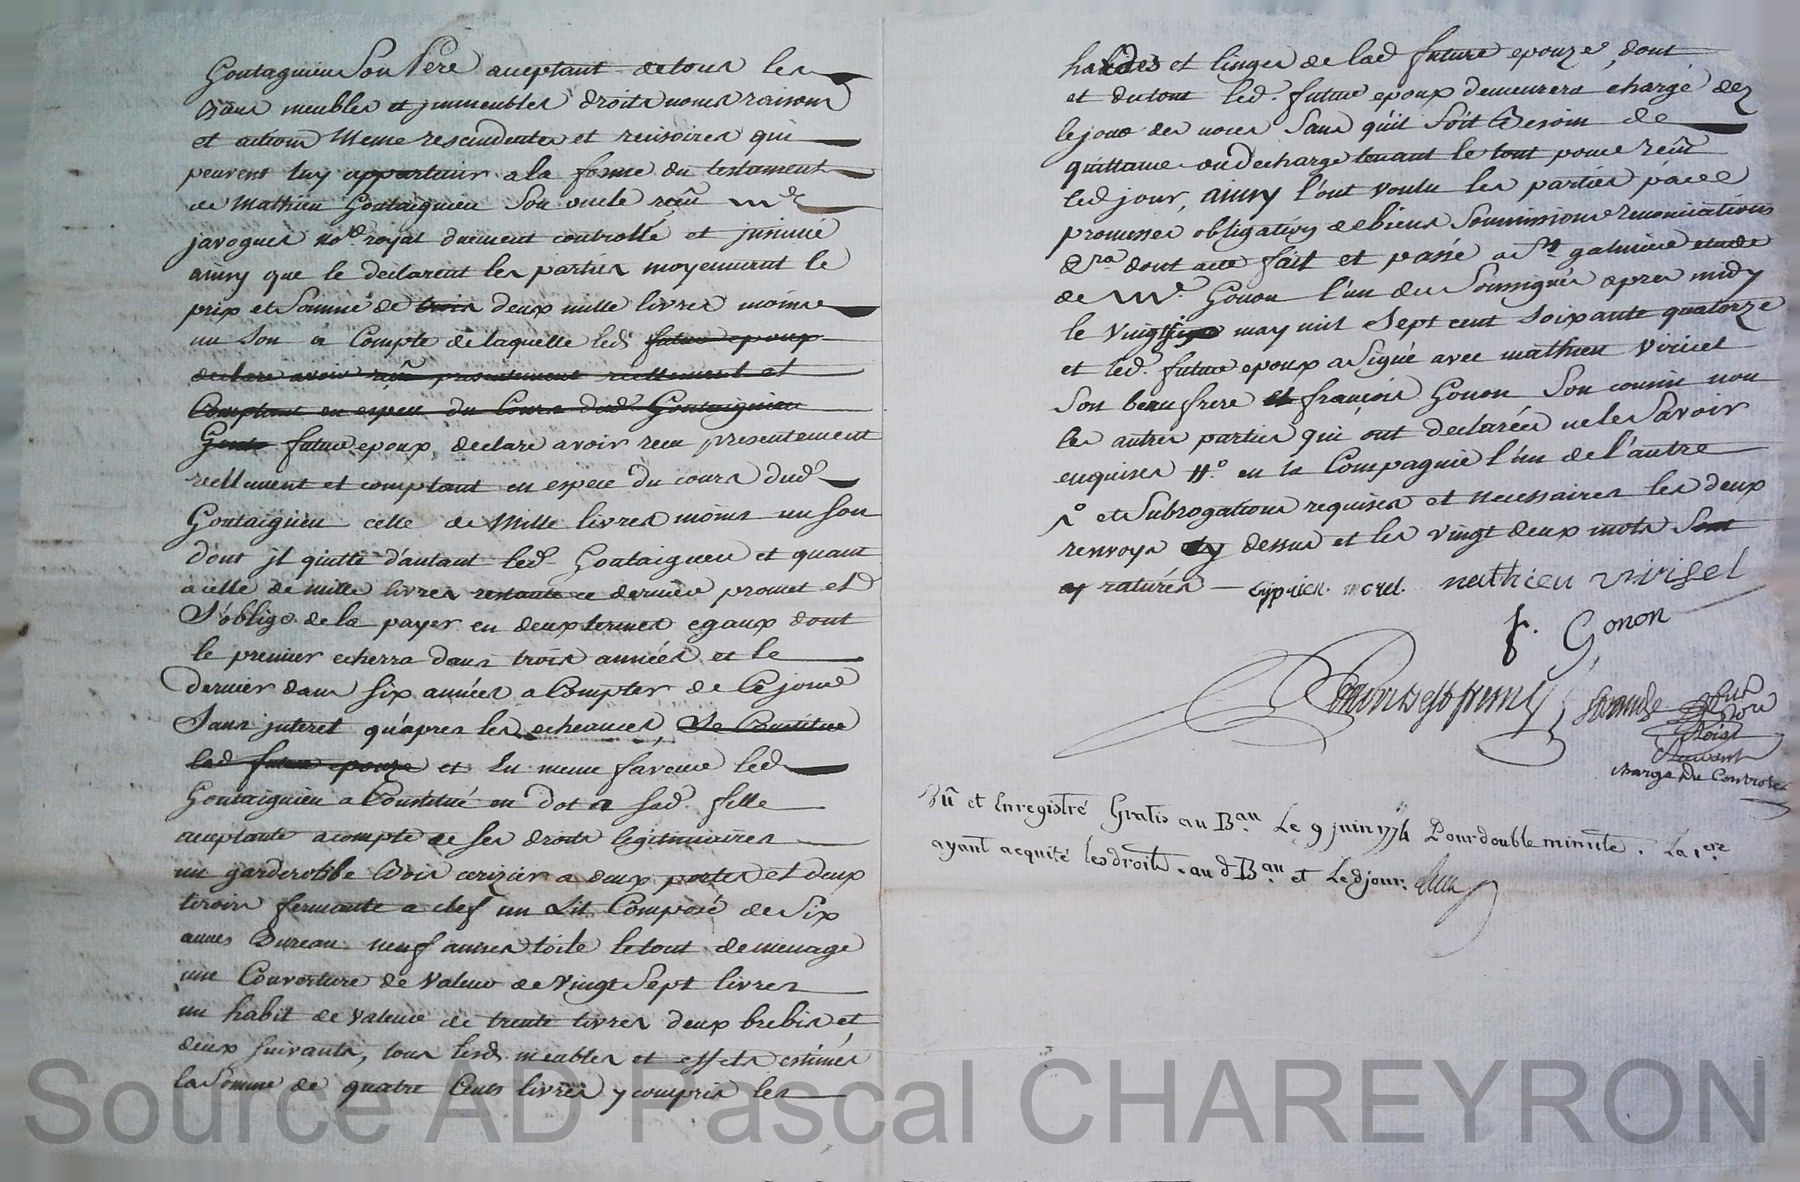 Goutagnieu Son Pere acceptant de tous les
Biens meubles et immeubles droits noms raisons
et actions meme rescindentes et recisoires qui
peuvent luy appartenir a la forme du testament
de Mathieu Goutaignieu Son oncle reçu Me
javogues no.re royal duement controllé et jnsinué
ainsy que le declarent les parties moyennant le
prix et Somme de trois deux mille livres moins
un Sou a Compte de laquelle led. futur epoux
declare avoir reçu presentement reellement et
Comptant en espece du Cours dud. Goutaignieu
futur epoux, declare avoir reçu presentement
reellement et comptant en espece du cours dud.
Goutaignieu celle de Mille livres moins un sou
dont jl quitte d'autant led. Goutaignieu et quant
a celle de mille livres restante ce dernier promet et
S'oblige de la payer en deux termes egaux dont
le premier echerra dans trois années et le
dernier dans six années a Compter de Ce jour
Sans jnteret qu'apres les echeances, Se Constitue
lad. future epouze et En meme faveur led.
Goutaignieu a Constitué en dot a sad. fille
acceptante a compte de ses droits legitimaires
un garderobbe Bois cerizier a deux portes et deux
tiroirs fermante a clef un Lit Composé de Six
aunes Bureau neuf aunes toile le tout de menage
une Couverture de Valeur de Vingt Sept livres
un habit de valeur de trente livres deux brebis et
deux suivants, tous lesd. meubles et effets estimés
la Somme de quatre Cents livres y compris les
hardes et linges de lad. future epouze, dont
et du tout led. futur epoux demeurera chargé dez
le jour des noces Sans qu'il Soit Besoin de
quittance ou decharge tenant le tout pour reçu
led. jour, ainsy l'ont voulu les parties
promesses obligations de biens Soumissions renonciations
&.ra dont acte fait et passé a St. galmier etude
de Me. Gonon l'un des Soussignés apres midy
le Vingt may mil Sept cent Soixante quatorze
et led. futur epoux a Signé avec mathieu Viricel
Son beau frere et françois Gonon Son cousin non
les autres parties qui ont declarées ne le Savoir
enquises #.o en la Compagnie l'un de l'autre
et Subrogations requises et necessaires les deux
renvoys cy dessus et les vingt deux mots Sont
ratures — cyprien. morel. mathieu virisel
f. Gonon
marge du Controlle
Vû et Enregistré Gratis au B.au Le 9 juin 1774 Pour double minute. La 1.ere
ayant acquité les droits. au d. B.au et Led. jour.